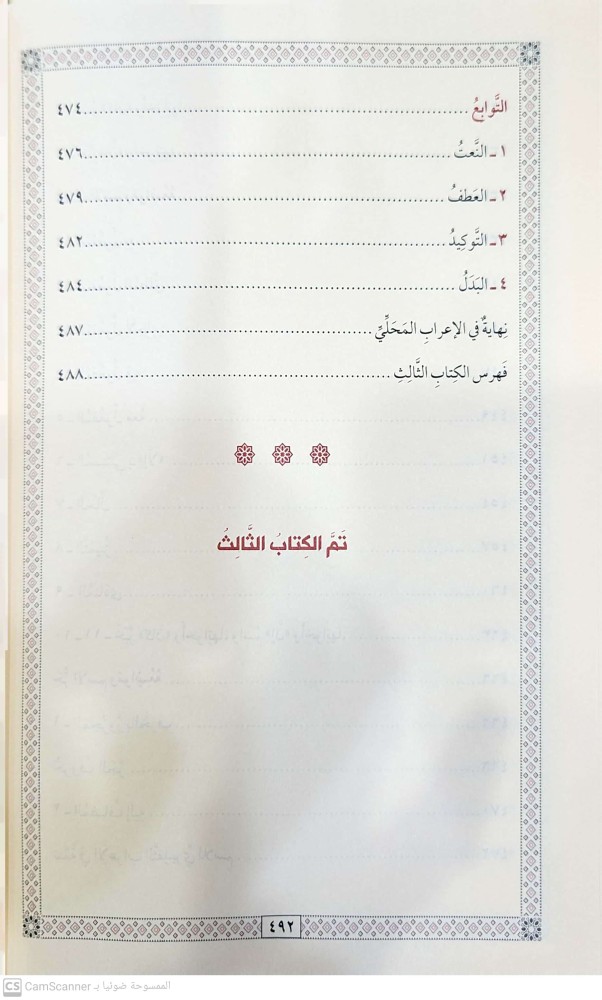 التَّوابعُ ........ ٤٧٤
١ ـ النَّعتُ ........ ٤٧٦
٢ ـ العَطفُ ........ ٤٧٩
٣ ـ التَّوكِيدُ ........ ٤٨٢
٤ ـ البَدَلُ ........ ٤٨٤
نِهايةٌ في الإعرابِ المَحَلِّيِّ ........ ٤٨٧
فَهرس الكِتابِ الثَّالِثِ ........ ٤٨٨
تَمَّ الكِتابُ الثَّالِثُ
٤٩٢
CS CamScanner الممسوحة ضوئيا بـ